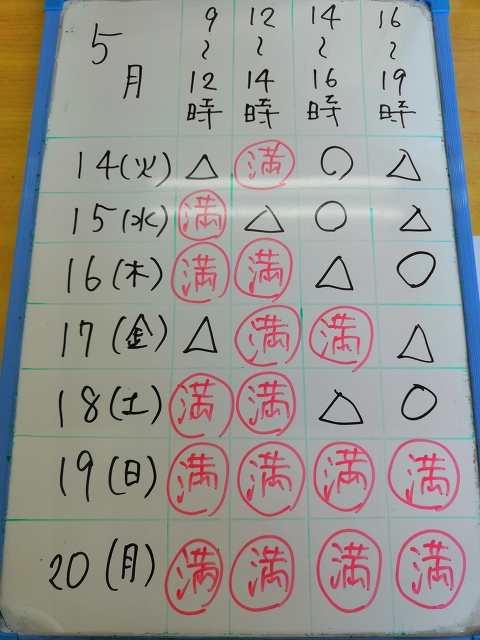 5月 9～12時 12～14時 14～16時 16～19時
14(火) △ 満 ○ △
15(水) 満 △ ○ △
16(木) 満 満 △ ○
17(金) △ 満 満 △
18(土) 満 満 △ ○
19(日) 満 満 満 満
20(月) 満 満 満 満